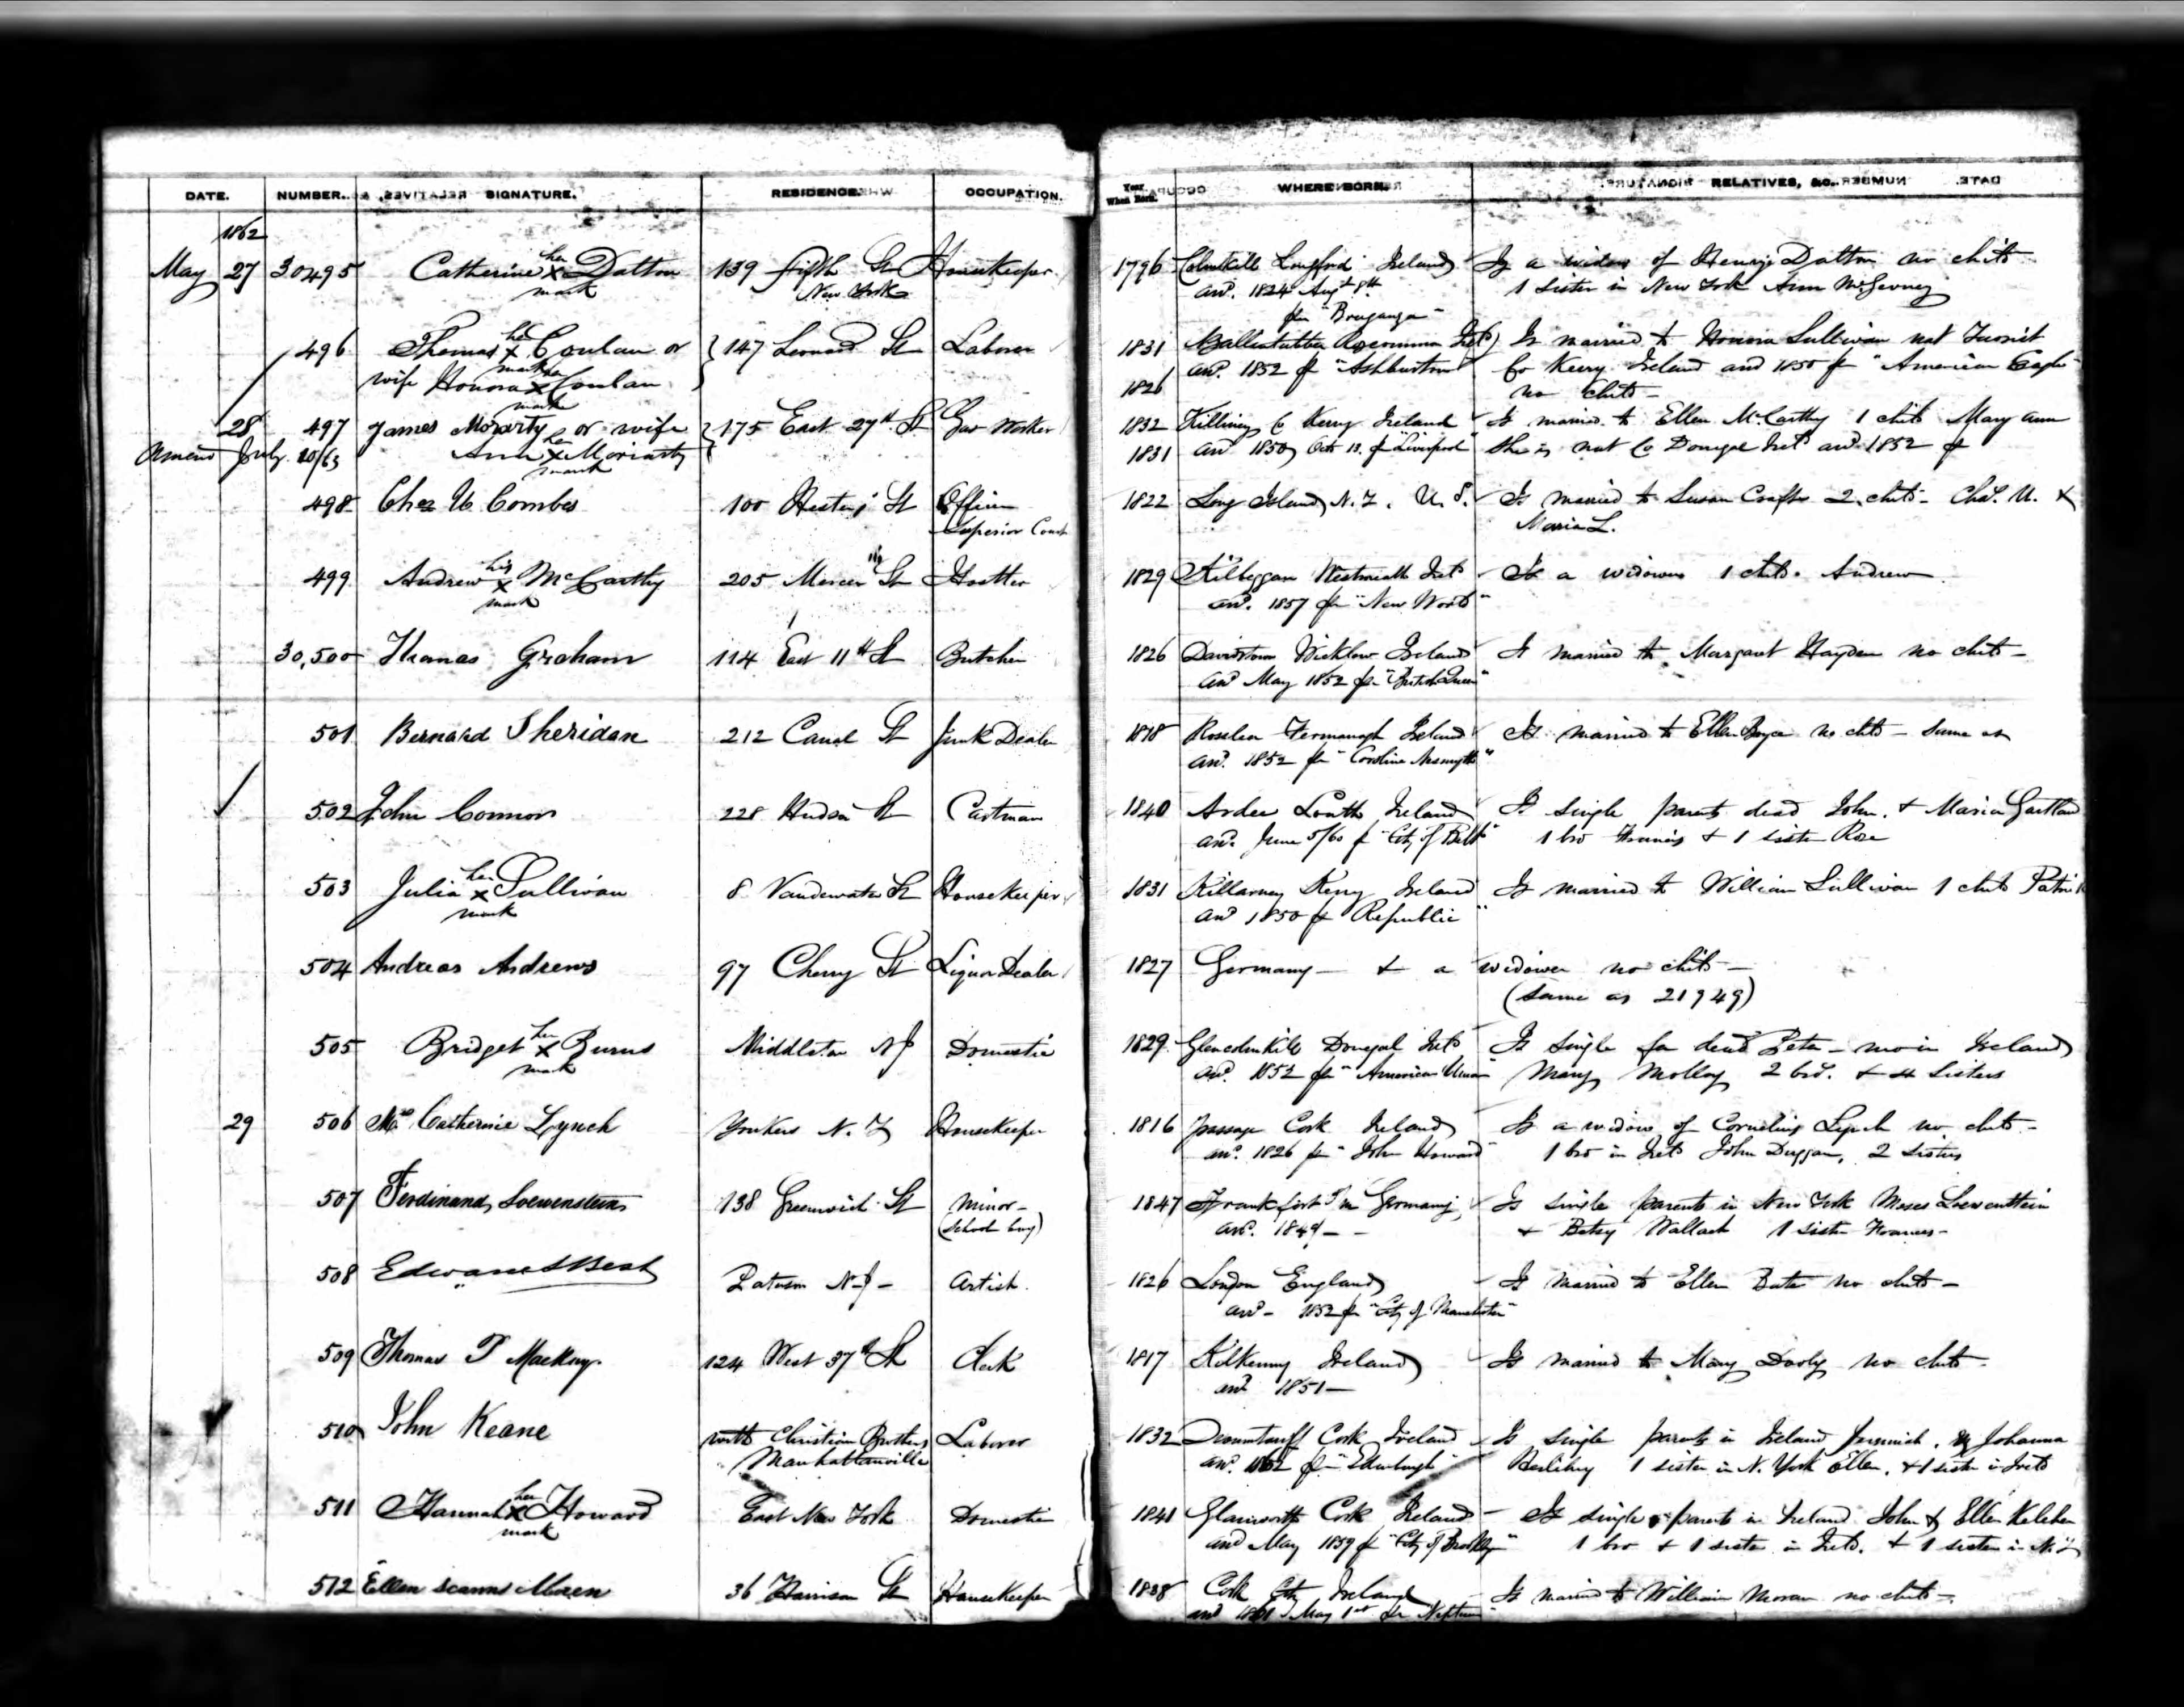 DATE. NUMBER. SIGNATURE. RESIDENCE. OCCUPATION. Year When Born. WHERE BORN. RELATIVES, &C.
1862
May 27 30495 Catherine her x mark Dalton 139 fifth St New York Housekeeper 1796 Longford Ireland Is a widow of Henry Dalton no chil
arr. 1824 Augt 8th 1 sister in New York Ann McGevney
fr "Braganza"
496 Thomas x mark Conlan or 147 Leonard St Laborer 1831 Roscommon Ireld Is married to Honora Sullivan nat
wife Honora x mark Conlan 1826 arr. 1852 fr "Ashburton" Co Kerry Ireland arrd 1850 fr "American Eagle"
no chil
28 497 James Morarty or wife 175 East 27th St 1832 Co Kerry Ireland Is married to Ellen McCarthy 1 chil Mary Ann
Amend July 20/63 Ann her x mark Moriarty 1831 arr 1850 Oct 13. fr "Liverpool" She is nat Co Donegal Ireld arrd 1852 fr
498 Chas U Combes 100 Hester St Officer 1822 Long Island, N.Y. U.S. Is married to Susan Crafts 2 chil Chas. U. &
Superior Court Maria L.
499 Andrew his x mark McCarthy 205 Mercer St Hostler 1829 Kilbeggan Westmeath Ireld Is a widower 1 chil. Andrew
arr. 1857 fr "New World"
30,500 Thomas Graham 114 East 11th St Butcher 1826 Davidstown Wicklow Ireland Is married to Margaret Hayden no chil
arrd May 1852 fr "British Queen"
501 Bernard Sheridan 212 Canal St Junk Dealer 1818 Roslea Fermanagh Ireland Is married to Ellen Boyce no chil - same as
arr. 1852 fr "Caroline Nesmyth"
502 John Connor 228 Hudson St Cartman 1840 Ardee Louth Ireland Is single parents dead John. & Maria Gartlan
arr. June 5/60 fr "City of Balt" 1 bro Francis & 1 sister Rose
503 Julia her x mark Sullivan 8 Vandewater St Housekeeper 1831 Killarney Kerry Ireland Is married to William Sullivan 1 chil Patrick
arrd 1850 fr "Republic"
504 Andreas Andrews 97 Cherry St Liquor Dealer 1827 Germany - Is a widower no chil -
(same as 21949)
505 Bridget her x mark Burns Middletown NJ Domestic 1829 Glencolmkill Donegal Ireld Is single fa dead Peter - mo in Ireland
arrd. 1852 fr "American Union" Mary Molloy 2 bro. & 4 sisters
29 506 Mrs Catherine Lynch Yonkers N.Y Housekeeper 1816 Passage Cork Ireland Is a widow of Cornelius Lynch no chil -
arr. 1826 fr "John Howard" 1 bro in Ireld John Duggan, 2 sisters
507 Ferdinand Loewenstein 138 Greenwich St Minor - 1847 Frankfort Germany Is single parents in New York Moses Loewenstein
(school boy) arr. 1849 - - & Betsy Wallach 1 sister Frances -
508 Edward Best Paterson N.J - Artist. 1826 London England Is married to Ellen Bate no chil -
arrd - 1852 fr "City of Manchester"
509 Thomas P Mackey. 124 West 37th St Clerk 1817 Kilkenny Ireland Is married to Mary Dooly no chil -
arrd 1851 -
510 John Keane with Christian Brothers Laborer 1832 Cork Ireland Is single parents in Ireland Jeremiah. & Johanna
Manhattanville arr. 1862 fr "Edinburgh" Herlihy 1 sister in N. York Ellen. & 1 sister in Ireld
511 Hannah her x mark Howard East New York Domestic 1841 Glanworth Cork Ireland Is single parents in Ireland John & Ellen Keleher
arrd May 1859 fr "City of Brooklyn" 1 bro & 1 sister in Ireld. & 1 sister in N.Y
512 Ellen 36 Harrison St Housekeeper 1838 Cork City Ireland Is married to William Moran no chil -
arrd 1861 May 1st fr Neptune